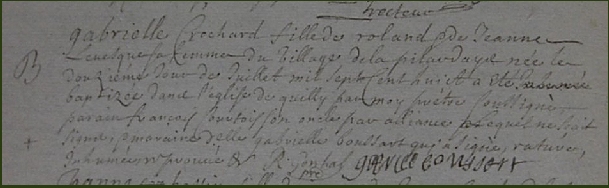 recteur
gabrielle Crochard fille de roland & de Jeanne
Leuesque sa femme du village de la pilardaye née le
B
douzieme Jour de Juillet mil sept cent huict a été
baptizée dans l'eglise de quilly par moy prêtre soussigné
parain francois son oncle par aliance lequel ne scait
signer, & maraine d'elle gabrielle boussart qui a signé, rature,
gabrielle boussart
pre